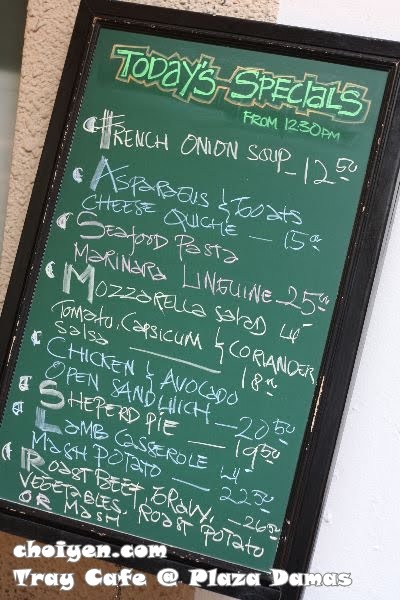 TODAY'S SPECIALS
FROM 12:30PM
FRENCH ONION SOUP - 12 50
ASPARAGUS &
CHEESE QUICHE - 15
SEAFOOD PASTA
MARINARA LINGUINE - 25
MOZZARELLA SALAD W
TOMATO, CAPSICUM & CORIANDER
SALSA - 18
CHICKEN & AVOCADO
OPEN SANDWICH - 20 50
SHEPERD PIE - 19 50
LAMB CASSEROLE W
MASH POTATO - 22 50
ROAST BEEF, GRAVY, - 26 50
VEGETABLES, ROAST POTATO
OR MASH
choiyen.com
Tray Cafe @ Plaza Damas